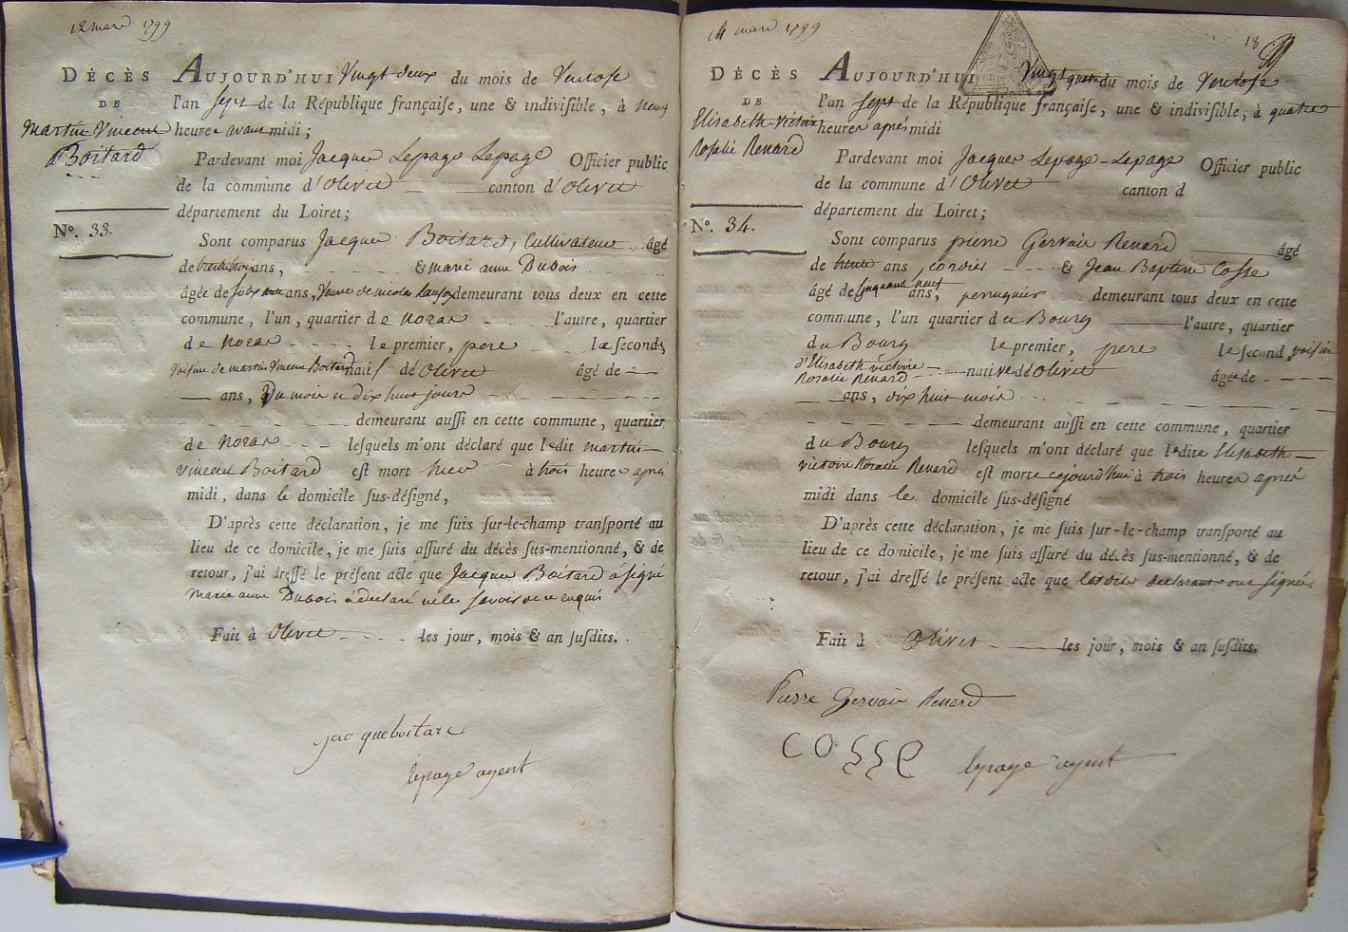 12 mars 1799
DÉCÈS
DE
Martin Vincent
Boitard
N°. 33.
AUJOURD'HUI Vingt deux du mois de Ventose
l'an sept de la République françaiſe, une & indiviſible, à neuf
heures avant midi;
Pardevant moi Jacques Lepage Lepage Officier public
de la commune d'Olivet canton d'Olivet
département du Loiret;
Sont comparus Jacques Boitard, Cultivateur âgé
de ans, & marie anne Dubois
âgée de ans, demeurant tous deux en cette
commune, l'un, quartier de noras l'autre, quartier
de noras le premier, pere la seconde
voisine de martin Vincent Boitard natif dé Olivet âgé de
ans, Du mois et dix huit jours
demeurant auſſi en cette commune, quartier
de noras leſquels m'ont déclaré que ledit martin
Vincent Boitard eſt mort hier à trois heures après
midi, dans le domicile ſus-déſigné,
D'après cette déclaration, je me ſuis ſur-le-champ tranſporté au
lieu de ce domicile, je me ſuis aſſuré du décès ſus-mentionné, & de
retour, j'ai dreſſé le préſent acte que Jacques Boitard a signé
marie anne Dubois a declaré ne le savoir de ce enquis
Fait à Olivet les jour, mois & an ſuſdits.
jacque boitare
lepage agent
14 mars 1799
18
DÉCÈS
DE
Elisabeth victoire
Rosalie Renard
N°. 34.
AUJOURD'HUI Vingt quatre du mois de Ventose
l'an sept de la République françaiſe, une & indiviſible, à quatre
heures après midi
Pardevant moi Jacques Lepage-Lepage Officier public
de la commune d'Olivet canton d
département du Loiret;
Sont comparus pierre Gervais Renard âgé
de trente ans, & Jean Baptiste Cosse
âgé de cinquante neuf ans, perruquier demeurant tous deux en cette
commune, l'un quartier du Bourg l'autre, quartier
du Bourg le premier, pere le second, voisin
d'Elisabeth victoire
Rosalie Renard native dé Olivet âgée de
ans, dix huit mois
demeurant auſſi en cette commune, quartier
du Bourg leſquels m'ont déclaré que ladite Elisabeth
victoire Rosalie Renard eſt morte cejourd'hui à trois heures après
midi dans le domicile ſus-déſigné
D'après cette déclaration, je me ſuis ſur-le-champ tranſporté au
lieu de ce domicile, je me ſuis aſſuré du décès ſus-mentionné, & de
retour, j'ai dreſſé le préſent acte que lesdits declarants ont signés
Fait à Olivet les jour, mois & an ſuſdits.
Pierre Gervais Renard
COSSE
lepage agent